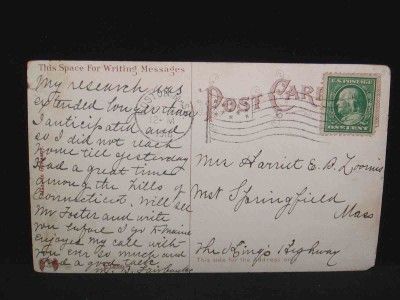 This Space For Writing Messages
My research was
extended longer than
I anticipated and
so I did not reach
home till yesterday
Had a great time
among the hills of
Connecticut. Will see
Mr Foster and write
you before I go to Maine
Enjoyed my call with
you ever so much and
had a good talk
POST CARD
U.S. POSTAGE
ONE CENT
Mrs Harriet E. B. Loomis
West Springfield
Mass
The King's Highway
This side for the address only